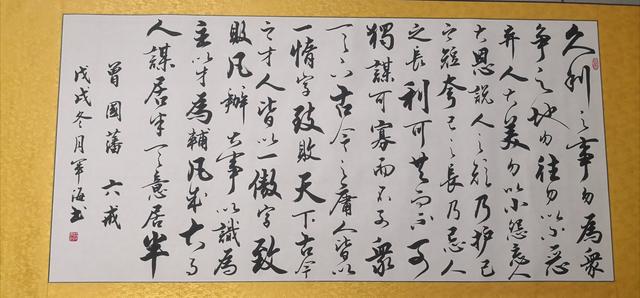 久利之事勿為衆
争之地勿往勿以小惡
弃人大美勿以小怨忘人
大恩説人之短乃护己
之短夸己之長乃忌人
之長利可共而不可
獨謀可寡而不可衆
天下古今之庸人皆以
一惰字致敗天下古今
之才人皆以一傲字致
敗凡辦大事以識為
主以才為輔凡成大事
人謀居半天意居半
曾國藩六戒
戊戌冬月軍海書